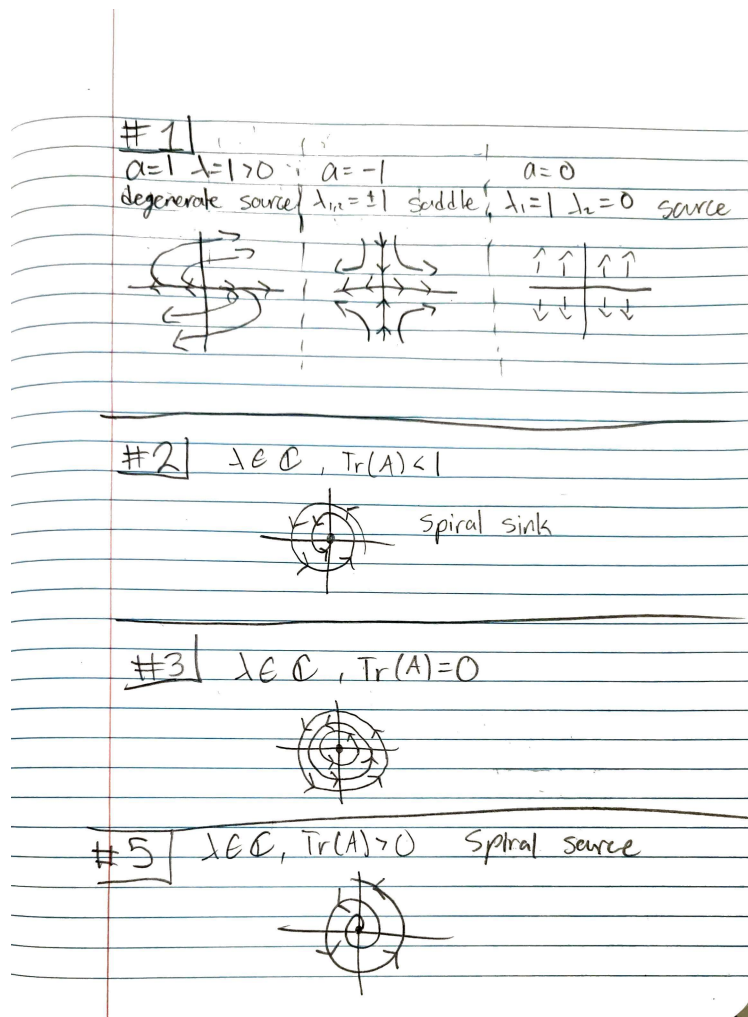 #1
a=1 λ=1>0 a=-1 a=0
degenerate source λ₁,₂=±1 saddle λ₁=1 λ₂=0 source
#2 λ∈ℂ, Tr(A)<1
Spiral sink
#3 λ∈ℂ, Tr(A)=0
#5 λ∈ℂ, Tr(A)>0 Spiral source